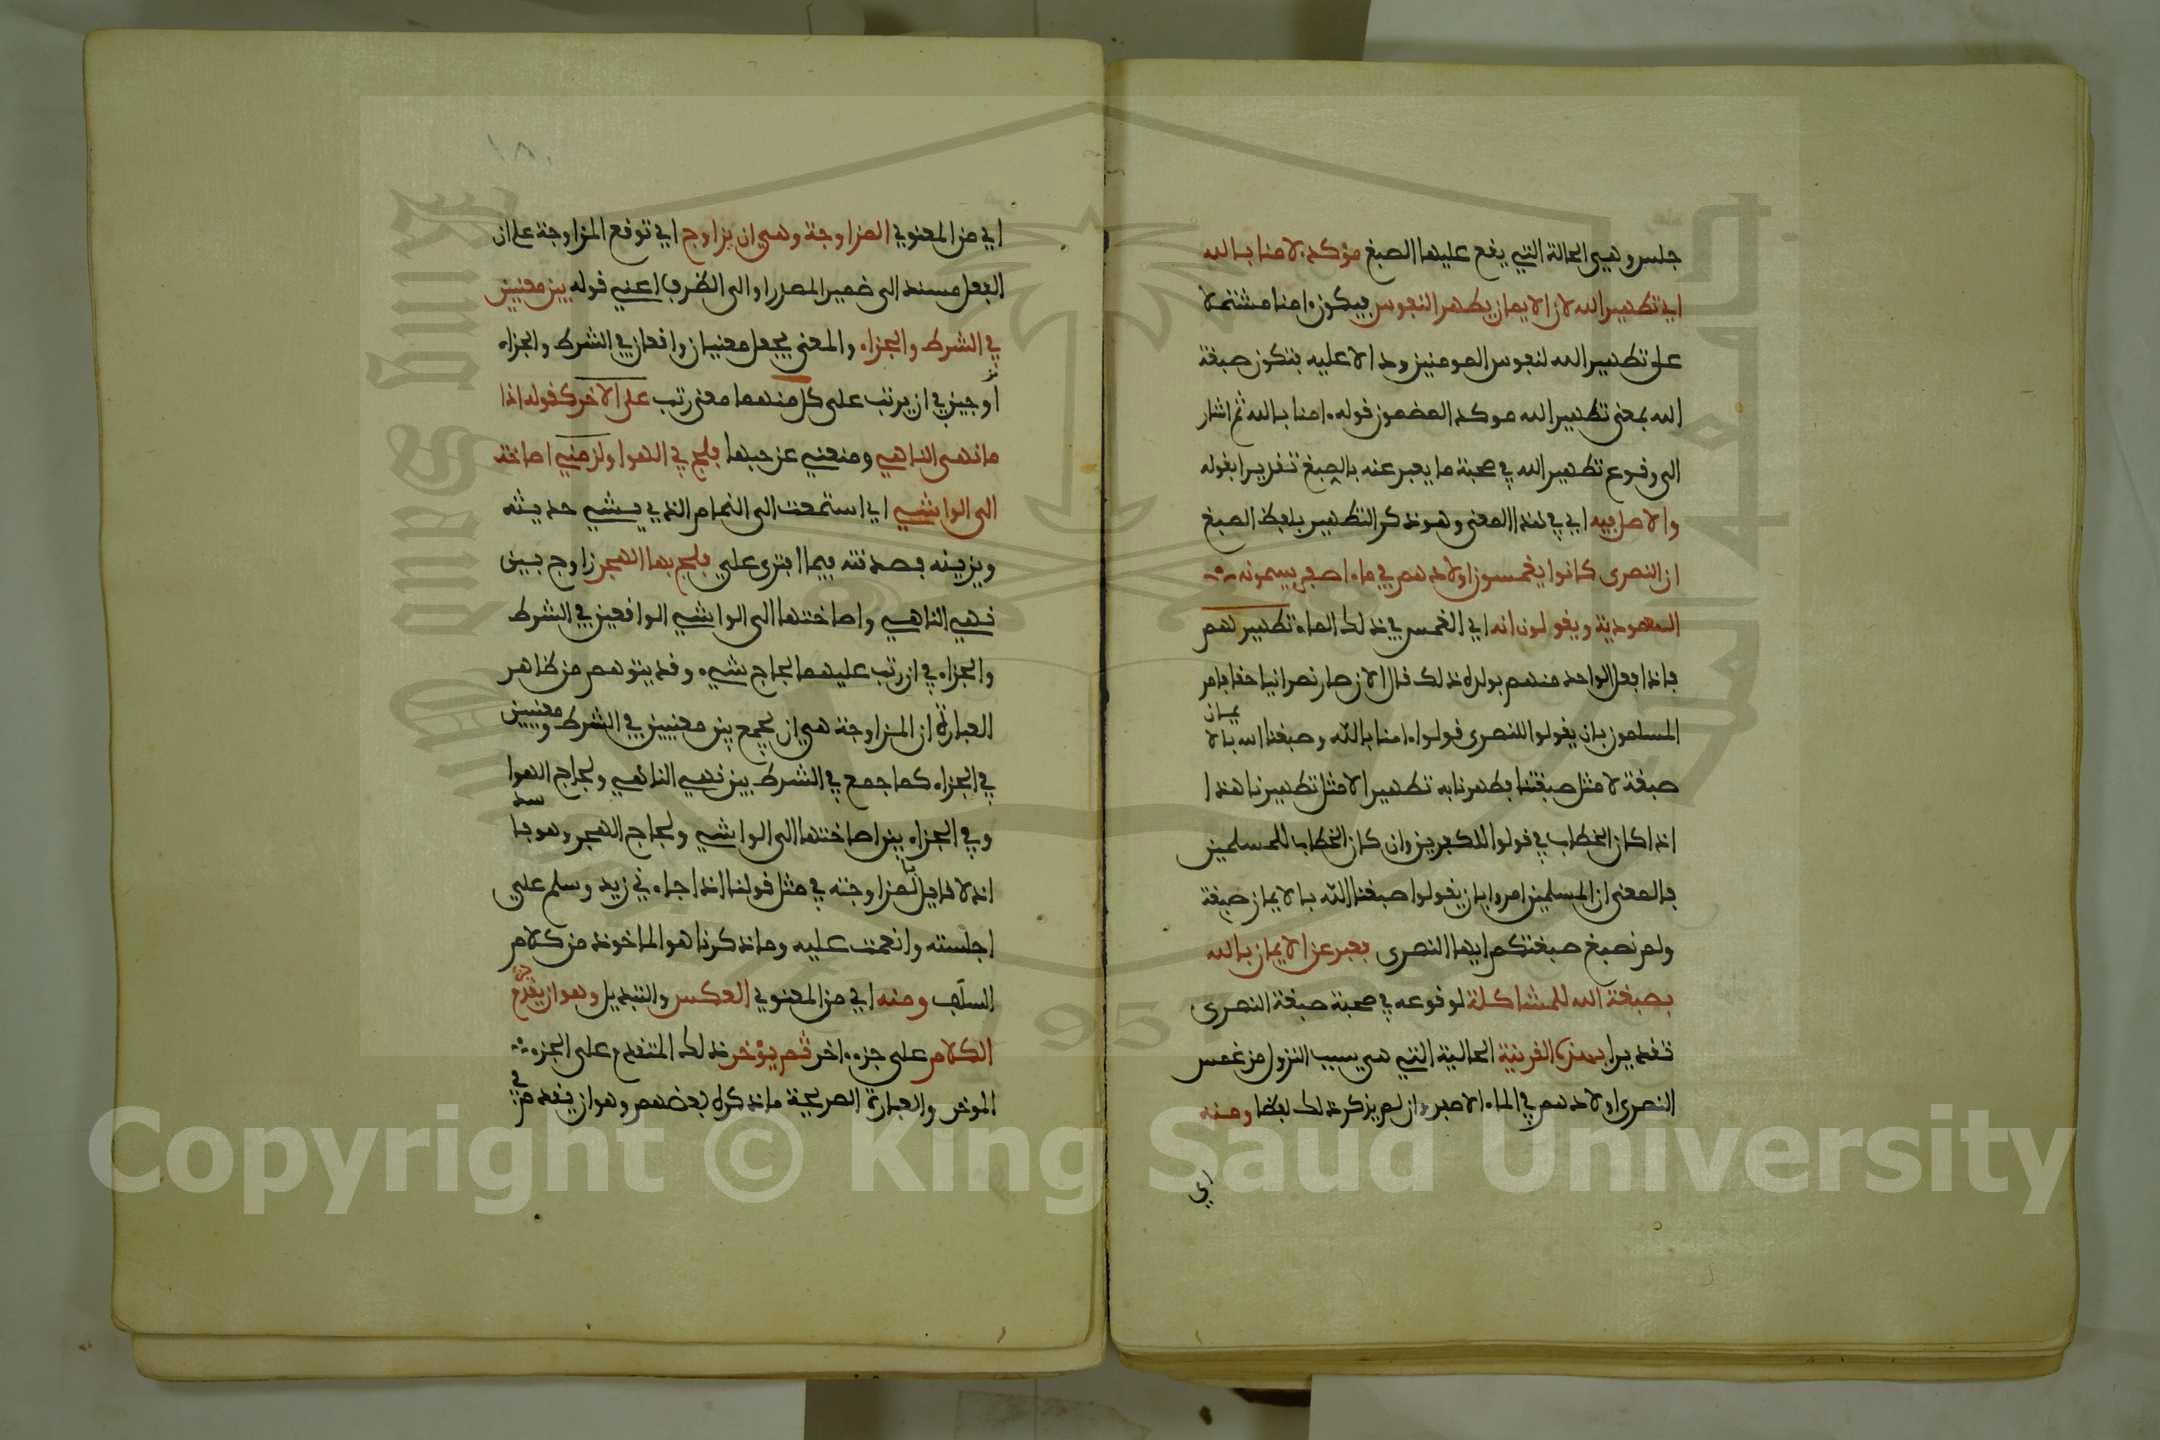 جلس وهي الحالة التي يقع عليها الصبغ مؤكد لامنا بالله
اي تطهير الله لان الايمان يطهر النفوس فيكون امنا مشتملا
على تطهير الله لنفوس المومنين ودالا عليه فتكون صبغة
الله بمعنى تطهير الله موكد المضمون قوله امنا بالله ثم اشار
الى وقوع تطهير الله في صحبة ما يعبر عنه بالصبغ تقديرا بقوله
والاصل فيه اي في هذا المعنى وهو ذكر التطهير بلفظ الصبغ
ان النصرى كانوا يغمسون اولادهم في ماء اصفر يسمونه
المعمودية ويقولون انه اي الغمس في ذلك الماء تطهير لهم
فاذا فعل الواحد منهم بولده ذلك قال الان صار نصرانيا حقا فامر
المسلمون بان يقولوا للنصرى قولوا امنا بالله وصبغنا الله بالايمان
صبغة لا مثل صبغتنا وطهرنا به تطهيرا لا مثل تطهيرنا هذا
اذا كان الخطاب في قولوا للكفرين وان كان الخطاب للمسلمين
فالمعنى ان المسلمين امروا بان يقولوا صبغنا الله بالايمان صبغة
ولم نصبغ صبغتكم ايها النصرى فعبر عن الايمان بالله
بصبغة الله للمشاكلة لوقوعه في صحبة صبغة النصرى
تقديرا بهذه القرينة الحالية التي هي سبب النزول من غمس
النصرى اولادهم في الماء الاصفر وان لم يذكر ذلك لفظا ومنه
اي
١٨٠
اي من المعنوي المزاوجة وهي ان يزاوج اي توقع المزاوجة على ان
الفعل مسند الى ضمير المصدر او الى الظرف اعني قوله بين معنيين
في الشرط والجزاء والمعنى يجعل معنيان واقعان في الشرط والجزاء
مزدوجين في ان يرتب على كل منهما معنى رتب على الاخر كقوله اذا
ما نهى الناهي ومنعني عن حبها فلج في الهوا ولزمني اصاخت
الى الواشي اي استمعت الى النمام الذي يشي حديثه
ويزينه فصدقته فيما افترى علي فلج بها الهجر زاوج بين
نهي الناهي واصاختها الى الواشي الواقعين في الشرط
والجزاء في ان رتب عليهما لجاج شيء وقد يتوهم من ظاهر
العبارة ان المزاوجة هي ان يجمع بين معنيين في الشرط ومعنيين
في الجزاء كما جمع في الشرط بين نهي الناهي ولجاج الهوا
وفي الجزاء بين اصاختها الى الواشي ولجاج الهجر وهو فاسد
اذ لا قايل بالمزاوجة في مثل قولنا اذا جاءني زيد وسلم علي
اجلسته وانعمت عليه وما ذكرنا هو الماخوذ من كلام
السلف ومنه اي من المعنوي العكس والتبديل وهو ان يقدم جزء
الكلام على جزء اخر ثم يؤخر ذلك المتقدم على الجزء
الموخر والعبارة الصريحة ما ذكره بعضهم وهو ان يقدم في